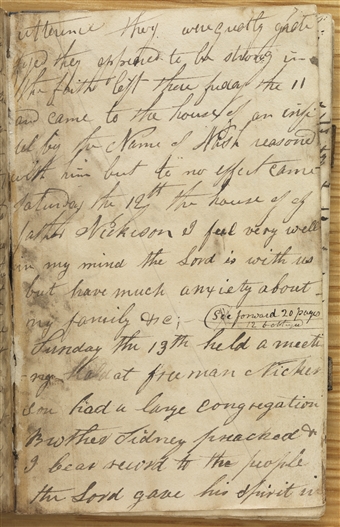 utterence they were greatly gr
they appeared to be strong in
the faith left there friday the 11
and came to the house of an infi
del by the Name of Nash reasoned
with him but to no effect came
Saturday the 12th the house of of
father Nickison I feel very well
in my mind the Lord is with us
but have much anxiety about
my family &c; —
(See forward 20 pages
Sunday the 13th held a meeti
ng at freeman Nicker
son had a large congregation
Brother Sidney preached &
I bear record to the people
the Lord gave his spirit in